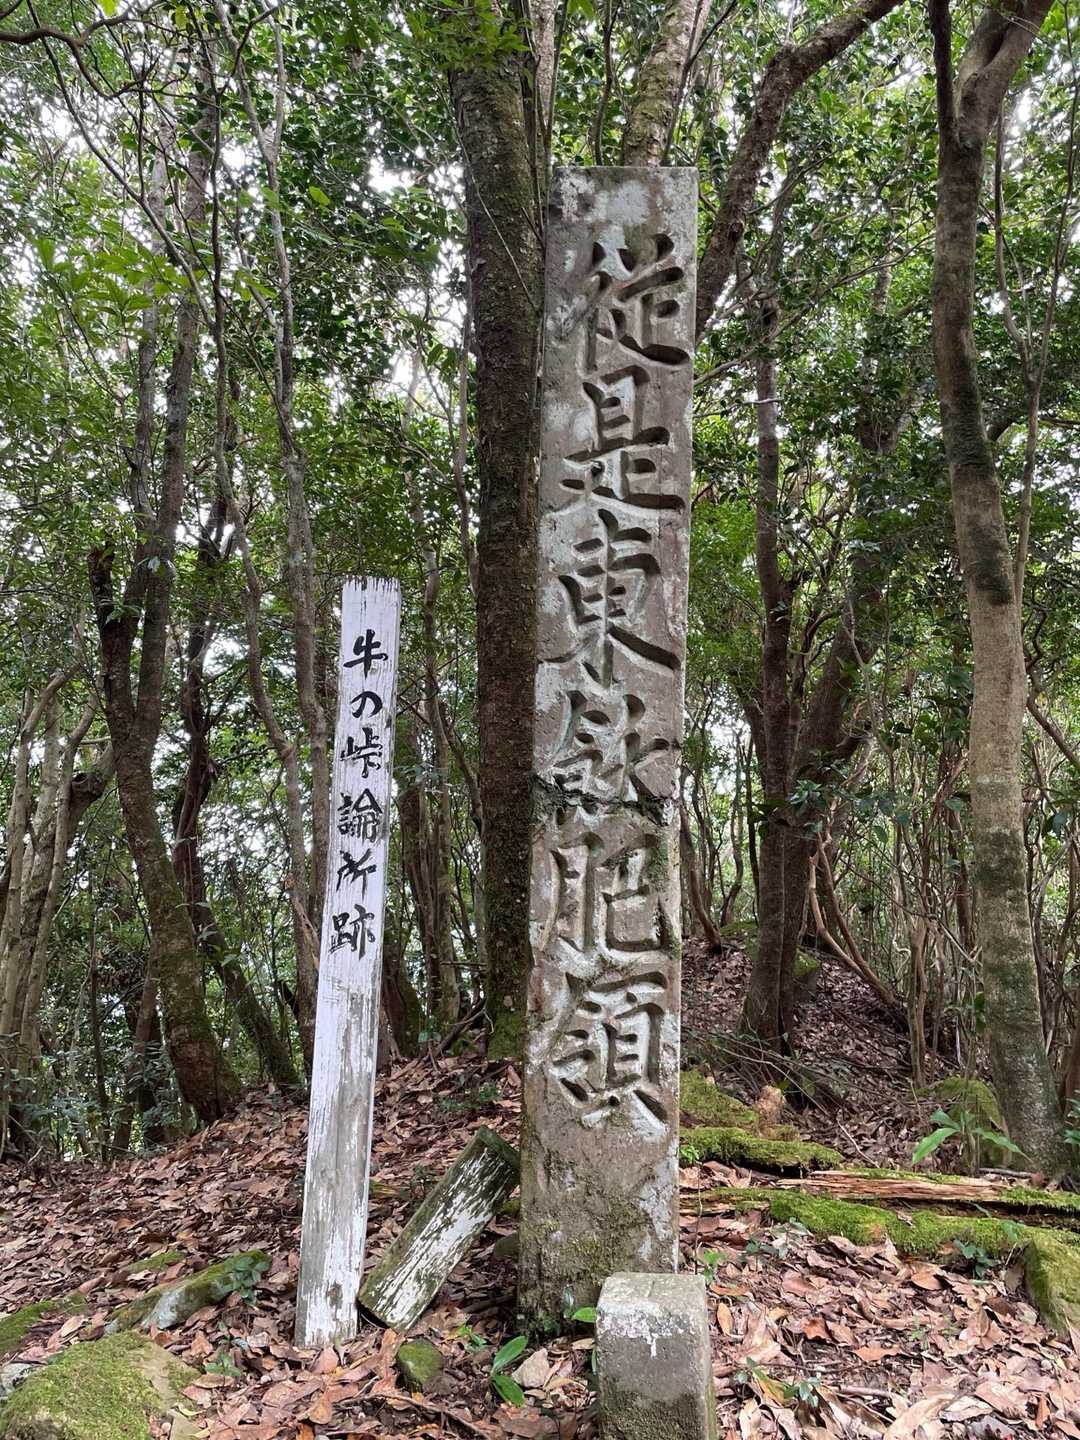 従是東飫肥領
牛の峠論所跡